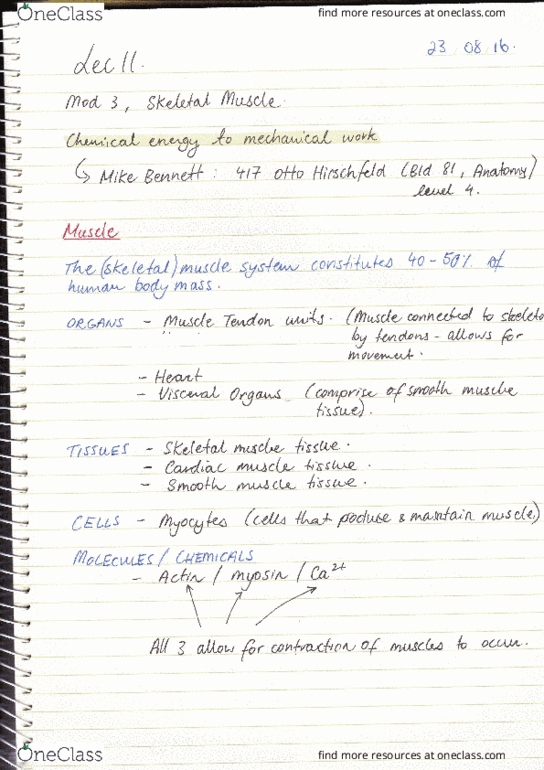 OneClass find more resources at oneclass.com
23 08 16.
Lec 11.
Mod 3, Skeletal Muscle.
Chemical energy to mechanical work
↳ Mike Bennett: 417 Otto Hirschfeld (Bld 81, Anatomy)
level 4.
Muscle
The (skeletal) muscle system constitutes 40-50% of
human body mass.
ORGANS - Muscle Tendon units. (Muscle connected to skeleto
by tendons - allows for
movement.
- Heart
- Visceral Organs (comprise of smooth muscle
tissue).
TISSUES - Skeletal muscle tissue.
- Cardiac muscle tissue.
- Smooth muscle tissue.
CELLS - Myocytes (cells that poduse & maintain muscle.)
MOLECULES/CHEMICALS
- Actin / myosin / Ca²⁺
All 3 allow for contraction of muscles to occur.
OneClass find more resources at oneclass.com